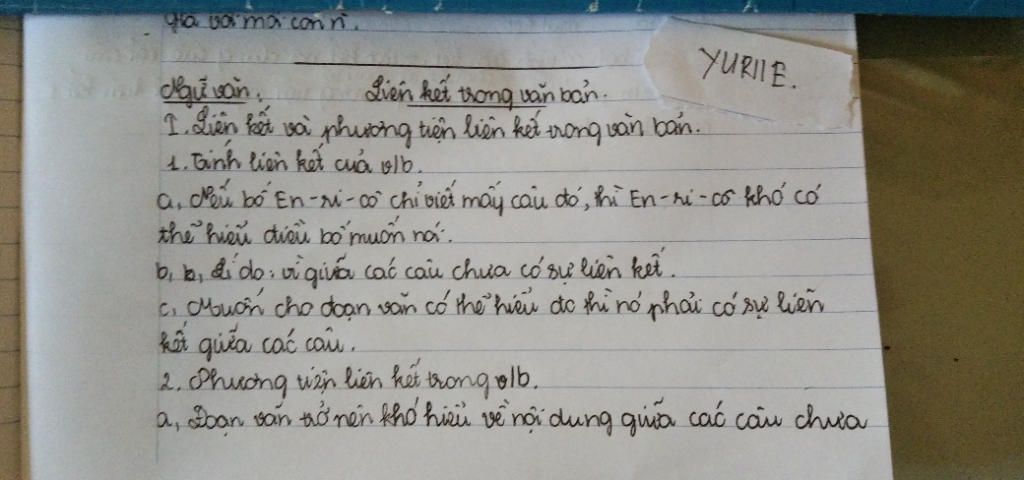 già với mọi con n
YURIIE.
Ngữ văn. Liên kết trong văn bản.
I. Liên kết và phương tiện liên kết trong văn bản.
1. Tính liên kết của v/b.
a, Nếu bố En-ri-cô chỉ viết mấy câu đó, thì En-ri-cô khó có
thể hiểu điều bố muốn nói.
b, b, Lí do: vì giữa các câu chưa có sự liên kết.
c, Muốn cho đoạn văn có thể hiểu đc thì nó phải có sự liên
kết giữa các câu.
2. Phương tiện liên kết trong v/b.
a, Đoạn văn trở nên khó hiểu về nội dung giữa các câu chưa